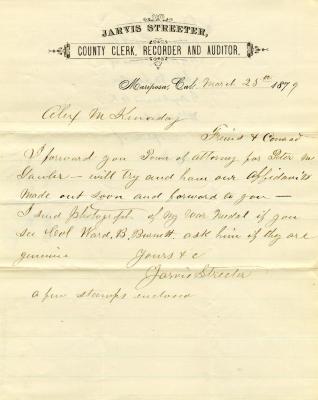 JARVIS STREETER,
COUNTY CLERK, RECORDER AND AUDITOR.
Mariposa, Cal. March 25th 1879
Alex M Kenaday
Freind & Comrad
I forward you Power of Attorney for Peter Mc
Gawler - will try and have our Affidavits
Made out soon and forward to you -
I send photograph of My War Medal if you
see Col Ward. B. Burnett. ask him if they are
genuine Yours & c
Jarvis Streeter
a few stamps enclosed